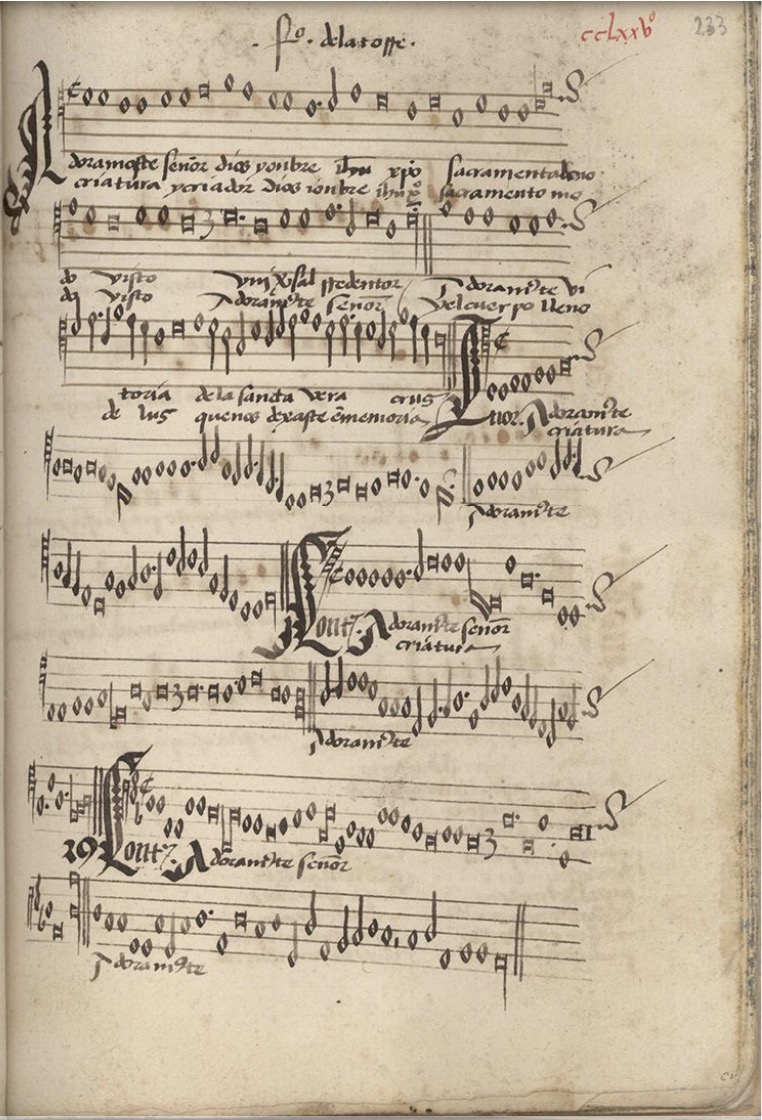 .fº. delatorre.
cclxxvº 233
Adoramoste señor dios yonbre ihu xpo sacramental
criatura ycriador dios ionbre ihu xº sacramento
do visto señor Adoramˢte vi
do visto Adoramˢte señor yelcuerpo lleno
toria dela santa vera crus
de lus quenos dexaste ē memoria
Tenor. Adoramˢte
criatura
Adoramˢte
Contrª. Adoramˢte señor
criatura
Adoramˢte
Contrª. Adoramˢte señor
Adoramˢte